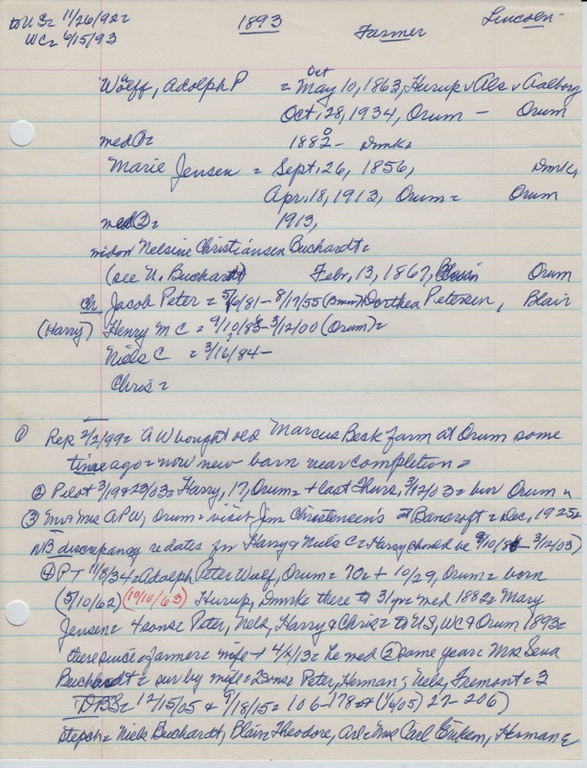 to US= 11/26/92= 1893 Farmer Lincoln-
WC= 6/15/93
Oct
Wolff, Adolph P = May 10, 1863, Hurup v Als v Aalborg
Oct, 28, 1934, Orum - Orum
med ①= 1882- Dmk=
Marie Jensen = Sept, 26, 1856, Dmrk,
Apr, 18, 1913, Orum= Orum
med ②= 1913,
widow Nelsine Christiansen Buchardt=
(see N. Buchardt) Febr, 13, 1867, Blair Orum
ch Jacob Peter = 5/6/81-8/17/55 Dorthea Petersen, Blair
(Harry) Henry M C = 3/12/00 (Orum)=
Niels C = 3/16/84-
Chris=
① Rep 2/2/99= AW bought old Marcus Beck farm at Orum some
time ago= now new barn near completion=
② Pilot 3/19 & 23/03= Harry, 17, Orum= + last Thurs, 3/12/03= bur Orum
③ Mr & Mrs APW, Orum= visit Jim Christensen's at Bancroft= Dec, 1925=
NB discrepancy re dates for Harry & Niels C= Harry should be 3/12/03)
④ PT 11/8/34= Adolph Peter Wulf, Orum= 70= + 10/29, Orum= born
(5/10/62) (10/10/63) Hurup, Dmrk= there to 31 yr= med 1882= Mary
Jensen= 4 sons= Peter, Nels, Harry & Chris= to US, WC & Orum 1893=
there since= farmer= wife + 4/ /13= he med ② same year= Mrs Sena
Buchardt= sur by wife= 2 sons= Peter, Herman; Nels, Fremont= 3
DBS= 12/15/05 & 9/18/15= 106-178 (1/6/05) 27-206)
stepch= Niels Buchardt, Blair= Theodore, Arl= Mrs Carl Eriksen, Herman=